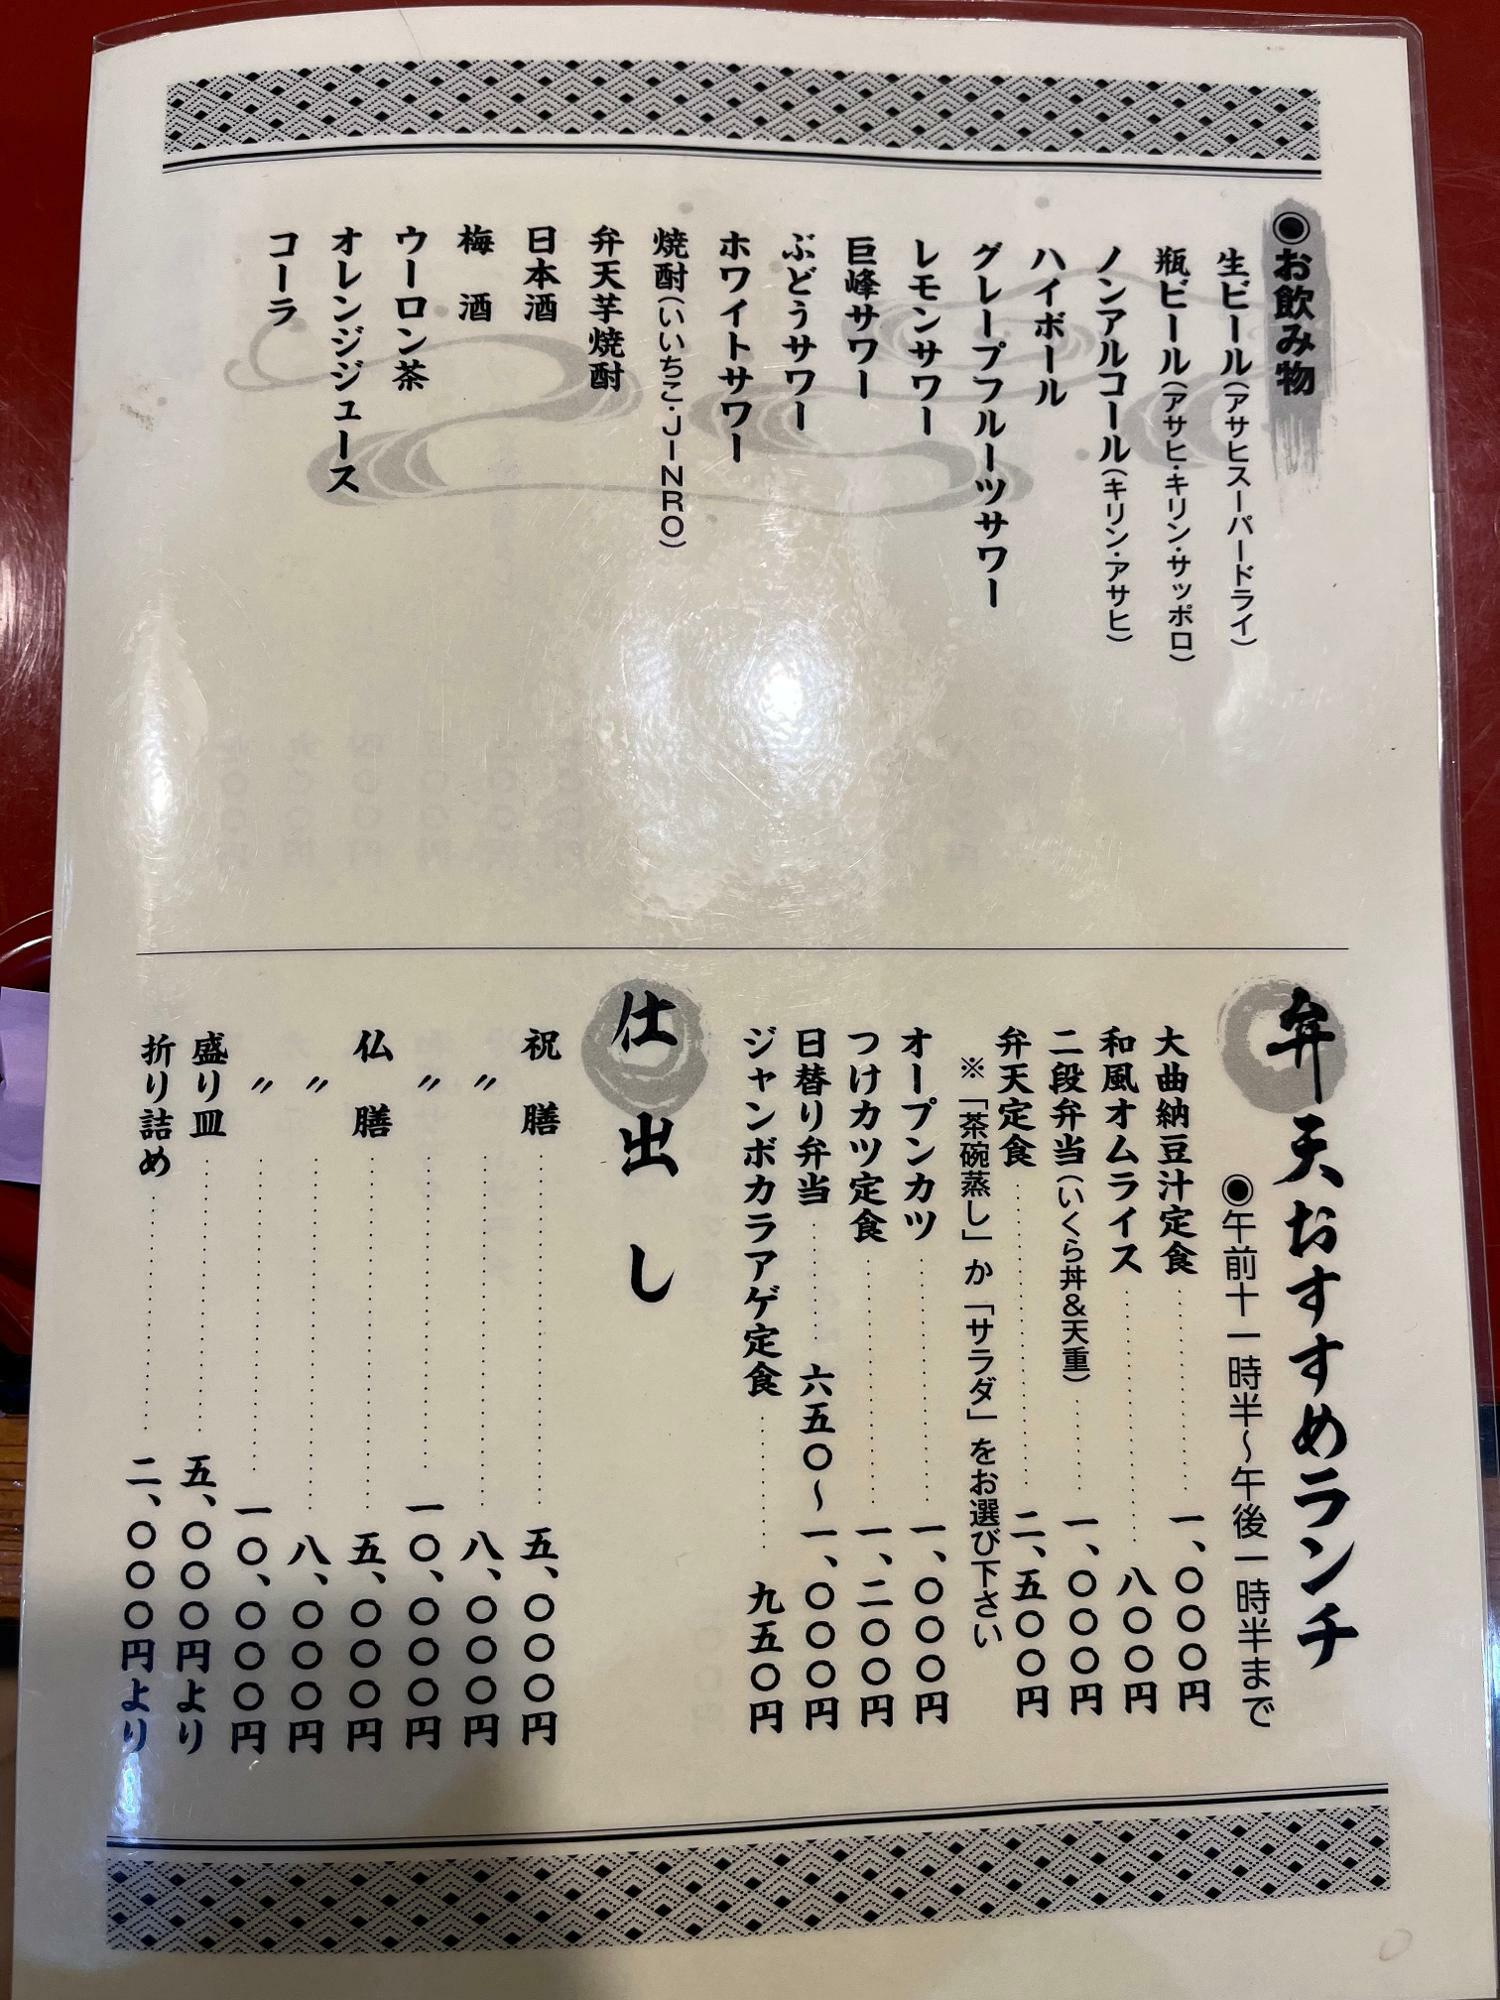 ◉お飲み物
生ビール(アサヒスーパードライ)
瓶ビール(アサヒ・キリン・サッポロ)
ノンアルコール(キリン・アサヒ)
ハイボール
グレープフルーツサワー
レモンサワー
巨峰サワー
ぶどうサワー
ホワイトサワー
焼酎(いいちこ・JINRO)
弁天芋焼酎
日本酒
梅 酒
ウーロン茶
オレンジジュース
コーラ
弁天おすすめランチ
◉午前十一時半〜午後一時半まで
大曲納豆汁定食…………一、〇〇〇円
和風オムライス…………八〇〇円
二段弁当(いくら丼&天重)…………一、〇〇〇円
弁天定食…………二、五〇〇円
※「茶碗蒸し」か「サラダ」をお選び下さい
オープンカツ…………一、〇〇〇円
つけカツ定食…………一、二〇〇円
日替り弁当…………六五〇〜一、〇〇〇円
ジャンボカラアゲ定食…………九五〇円
仕出し
祝 膳…………五、〇〇〇円
〃…………八、〇〇〇円
〃…………一〇、〇〇〇円
仏 膳…………五、〇〇〇円
〃…………八、〇〇〇円
〃…………一〇、〇〇〇円
盛り皿…………五、〇〇〇円より
折り詰め…………二、〇〇〇円より